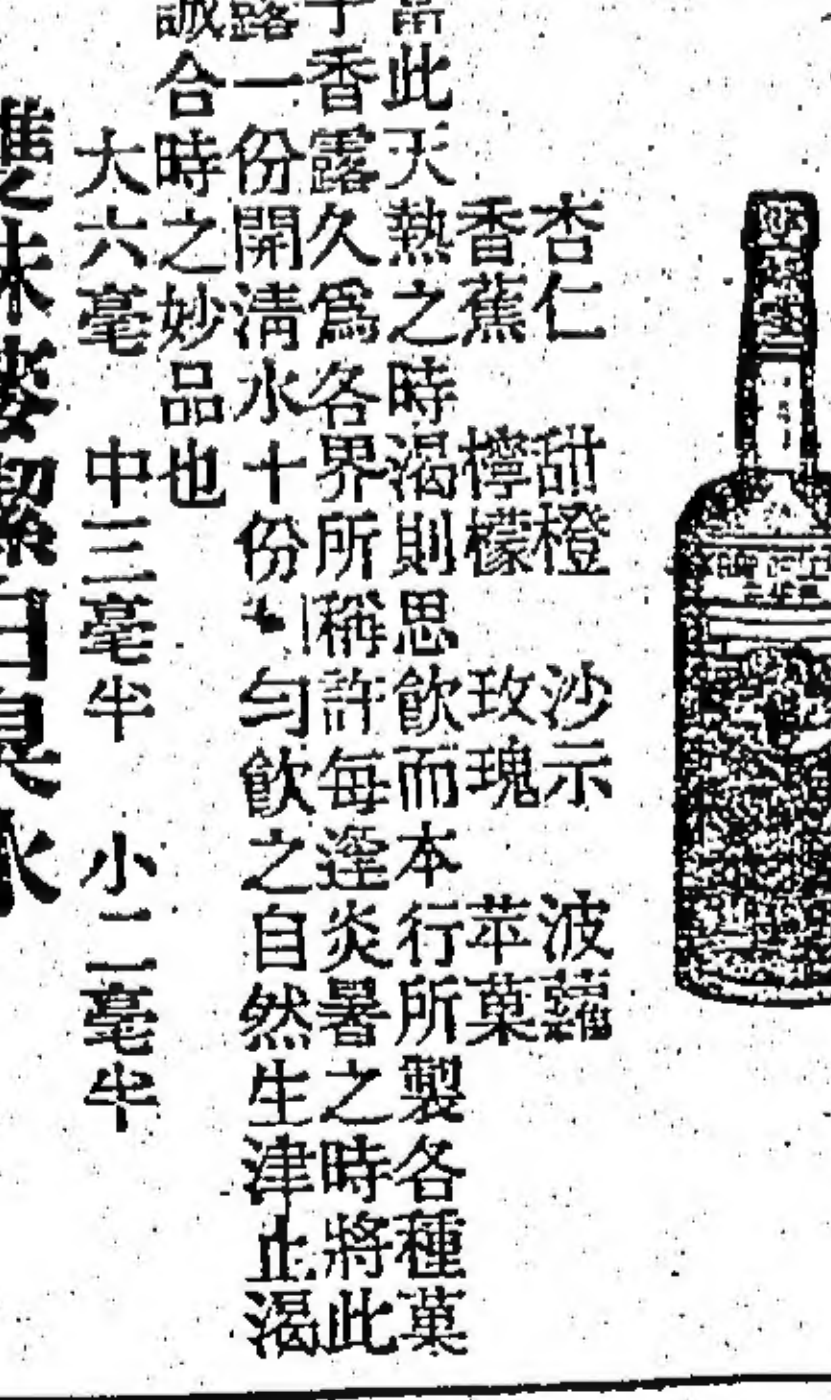 杏仁 甜橙 沙示 波蘿
香蕉 檸檬 玫瑰 苹菓
當此天熱之時渴則思飲而本行所製各種菓
子香露久爲各界所稱許每逢炎暑之時將此
露一份開清水十份勻飲之自然生津止渴
誠合時之妙品也
大六毫 中三毫半 小二毫半